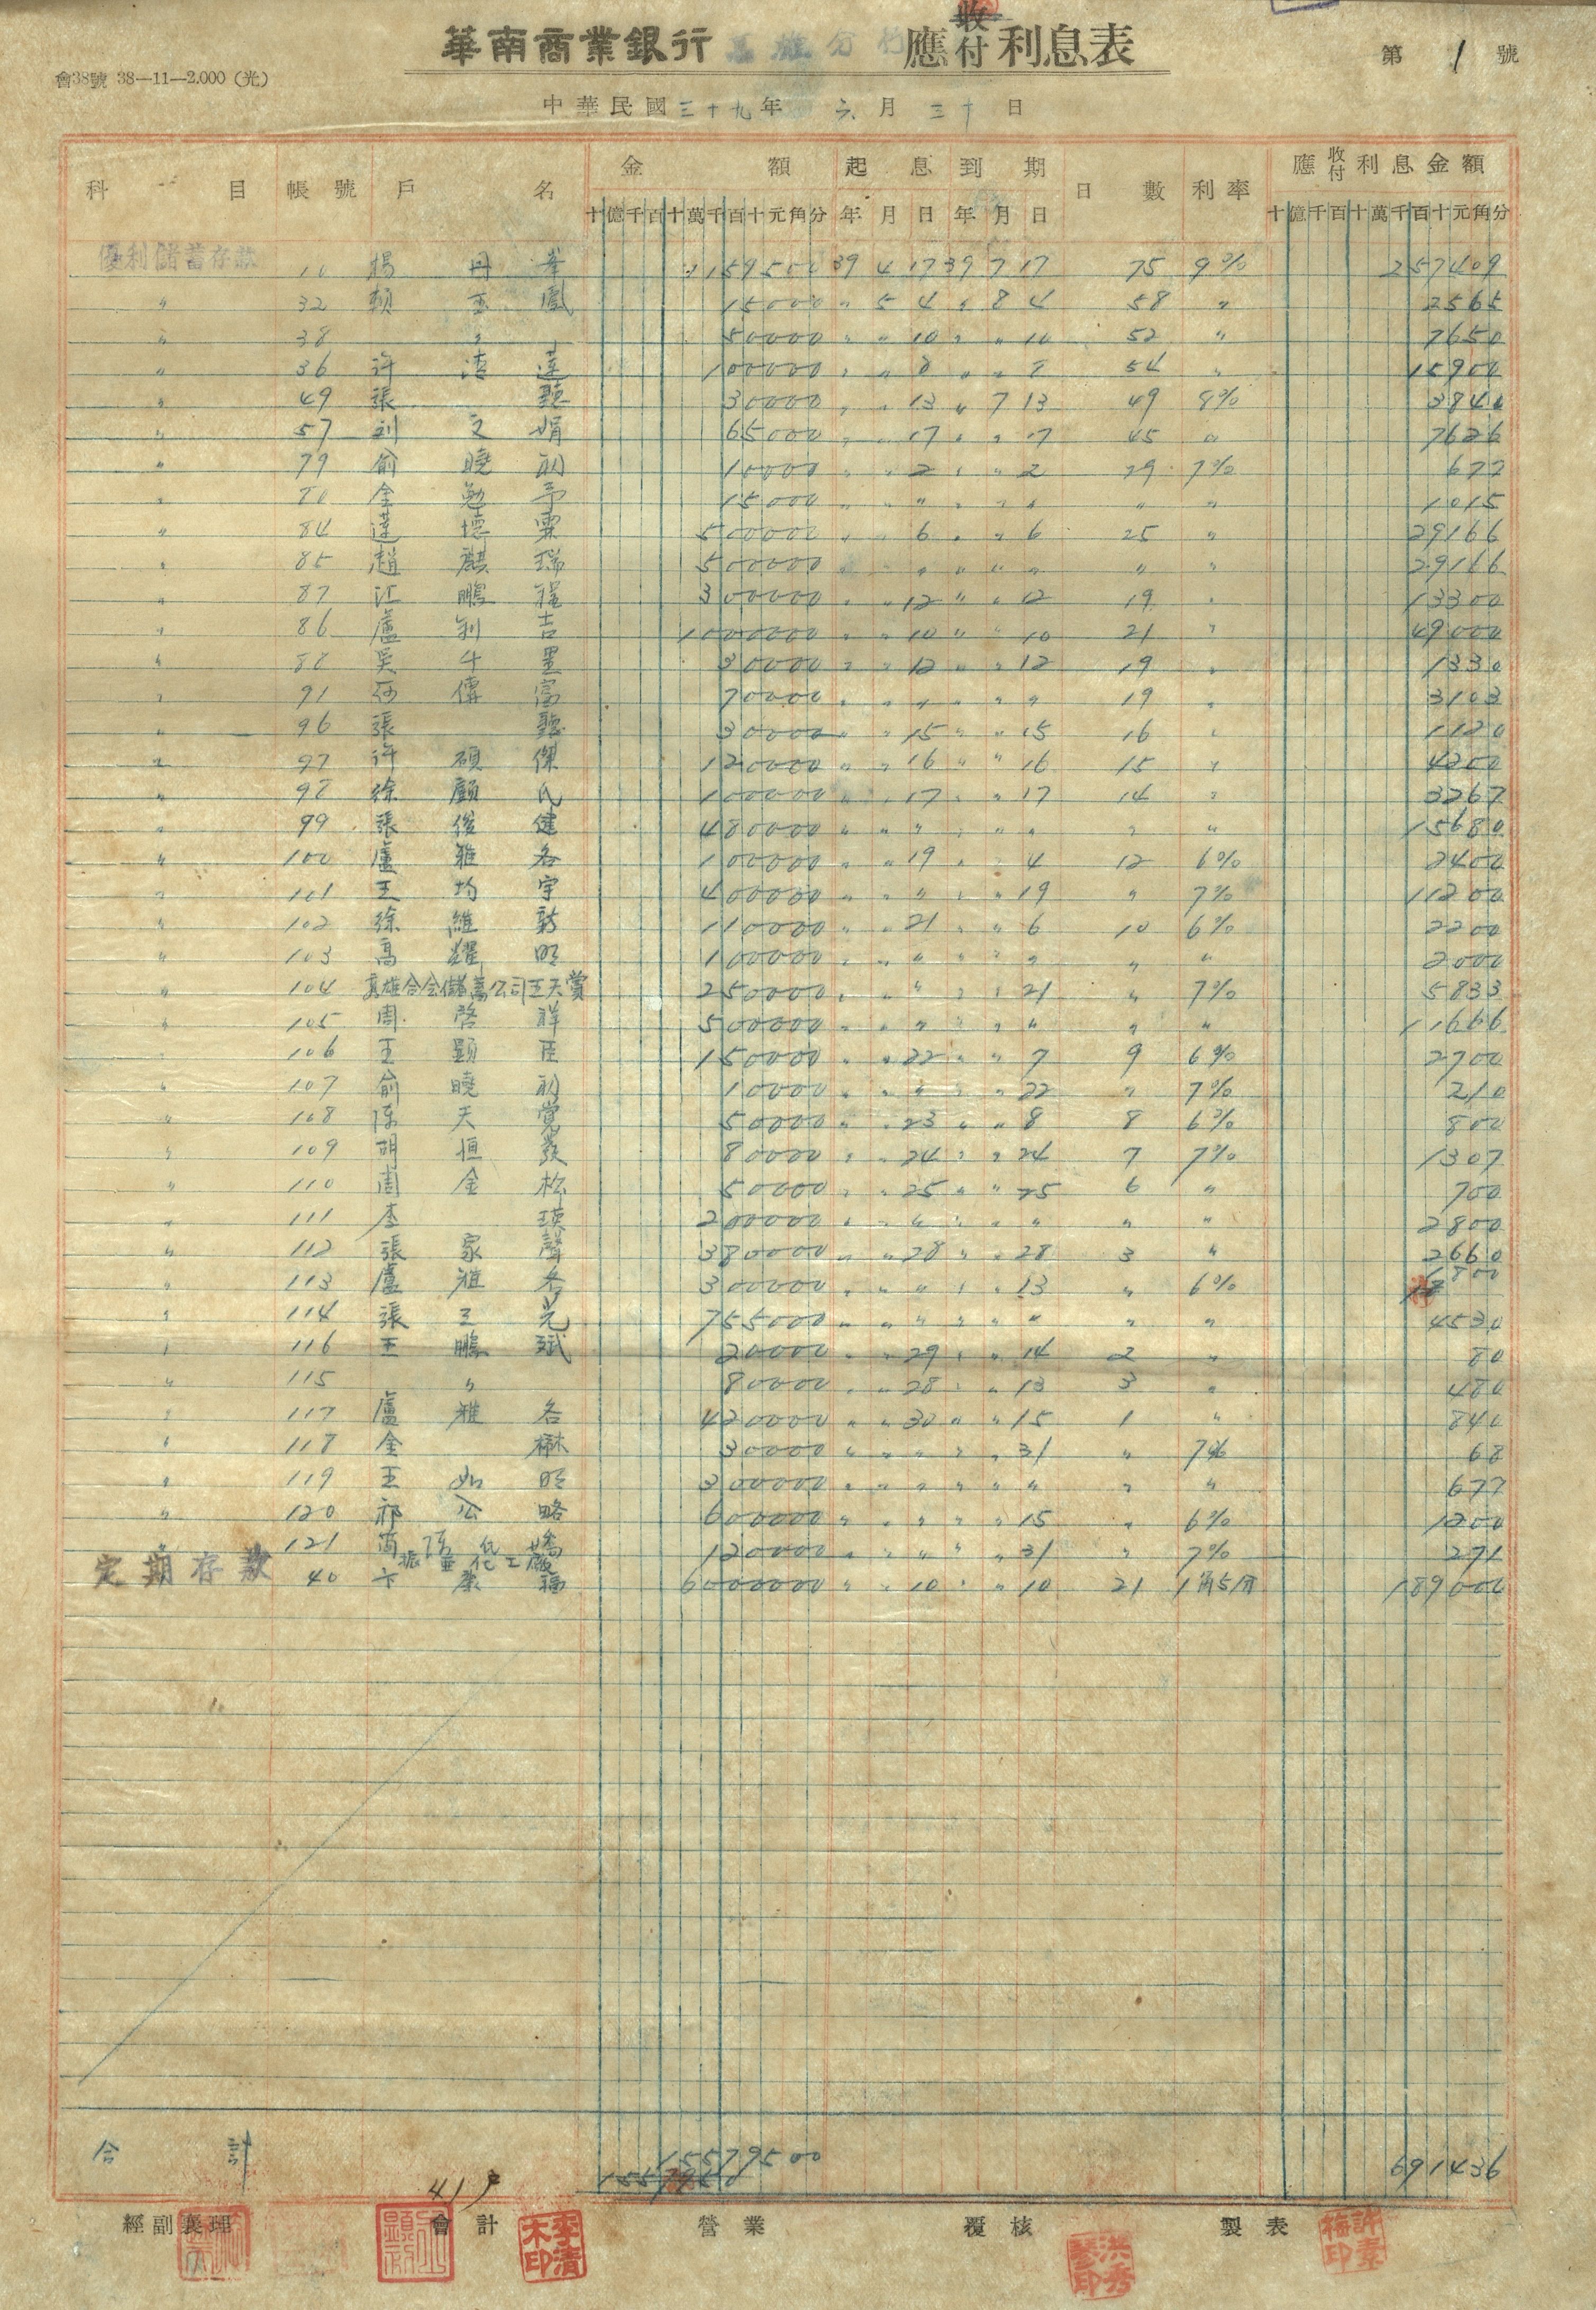 華南商業銀行 高雄分行 應收付利息表 第 1 號
會38號 38—11—2.000 (光)
中華民國三十九年 六月 三十日
科 目 帳號 戶 名 金 額 起 息 到 期 日 數 利率 應收付利息金額
十億千百十萬千百十元角分 年 月 日 年 月 日 十億千百十萬千百十元角分
優利儲蓄存款 10 楊丹 39 4 17 39 7 17 75 9% 257409
〃 32 賴玉鳳 15000 〃 5 4 〃 8 4 58 〃 2565
〃 38 〃 50000 〃 〃 10 〃 〃 10 52 〃 7650
〃 36 許 達 100000 〃 〃 8 〃 〃 8 54 〃 15900
〃 49 張聽 30000 〃 〃 13 〃 7 13 49 8% 3840
〃 57 劉文娟 65000 〃 〃 17 〃 〃 17 45 〃 7626
〃 79 俞曉初 10000 〃 〃 2 〃 〃 2 29 7% 677
〃 80 金勉予 15000 〃 〃 〃 〃 〃 〃 〃 〃 1015
〃 84 蓮德霖 500000 〃 〃 6 〃 〃 6 25 〃 29166
〃 85 趙麒瑞 500000 〃 〃 〃 〃 〃 〃 〃 〃 29166
〃 87 江鵬程 300000 〃 〃 12 〃 〃 12 19 〃 13300
〃 86 盧劍吉 1000000 〃 〃 10 〃 〃 10 21 〃 49000
〃 88 吳斗墨 30000 〃 〃 12 〃 〃 12 19 〃 1330
〃 91 傳富 70000 〃 〃 〃 〃 〃 〃 19 〃 3103
〃 96 張聽 30000 〃 〃 15 〃 〃 15 16 〃 1120
〃 97 許碩傑 120000 〃 〃 16 〃 〃 16 15 〃 4200
〃 98 徐顧氏 100000 〃 〃 17 〃 〃 17 14 〃 3267
〃 99 張俊健 480000 〃 〃 〃 〃 〃 〃 〃 〃 15680
〃 100 盧雅各 100000 〃 〃 19 〃 〃 4 12 6% 2400
〃 101 王均宇 400000 〃 〃 〃 〃 〃 19 〃 7% 11200
〃 102 徐維新 110000 〃 〃 21 〃 〃 6 10 6% 2200
〃 103 高耀明 100000 〃 〃 〃 〃 〃 〃 〃 〃 2000
〃 104 高雄合會儲蓄公司王天賞 250000 〃 〃 〃 〃 〃 21 〃 7% 5833
〃 105 周啓祥 500000 〃 〃 〃 〃 〃 〃 〃 〃 11666
〃 106 王顯臣 150000 〃 〃 22 〃 〃 7 9 6% 2700
〃 107 俞曉初 10000 〃 〃 〃 〃 〃 22 〃 7% 210
〃 108 陳天覺 50000 〃 〃 23 〃 〃 8 8 6% 800
〃 109 胡恒發 80000 〃 〃 24 〃 〃 24 7 7% 1307
〃 110 周金松 50000 〃 〃 25 〃 〃 25 6 〃 700
〃 111 李瑛 200000 〃 〃 〃 〃 〃 〃 〃 〃 2800
〃 112 張家聲 380000 〃 〃 28 〃 〃 28 3 〃 2660
〃 113 盧雅各 300000 〃 〃 〃 〃 〃 13 〃 6% 1800
〃 114 張王光 755000 〃 〃 〃 〃 〃 〃 〃 〃 4530
〃 116 王鵬斌 20000 〃 〃 29 〃 〃 14 2 〃 80
〃 115 〃 80000 〃 〃 28 〃 〃 13 3 〃 480
〃 117 盧雅各 420000 〃 〃 30 〃 〃 15 1 〃 840
〃 118 金楙 30000 〃 〃 〃 〃 〃 31 〃 7% 68
〃 119 王如明 300000 〃 〃 〃 〃 〃 〃 〃 〃 677
〃 120 祁公略 600000 〃 〃 〃 〃 〃 15 〃 6% 1200
〃 121 120000 〃 〃 〃 〃 〃 31 〃 7% 271
定期存款 40 振華化工廠 卞康福 6000000 〃 〃 10 〃 〃 10 21 1角5分 189000
合 計 41戶 15579500 691436
經副襄理 會計 營業 覆核 製表
李清木印